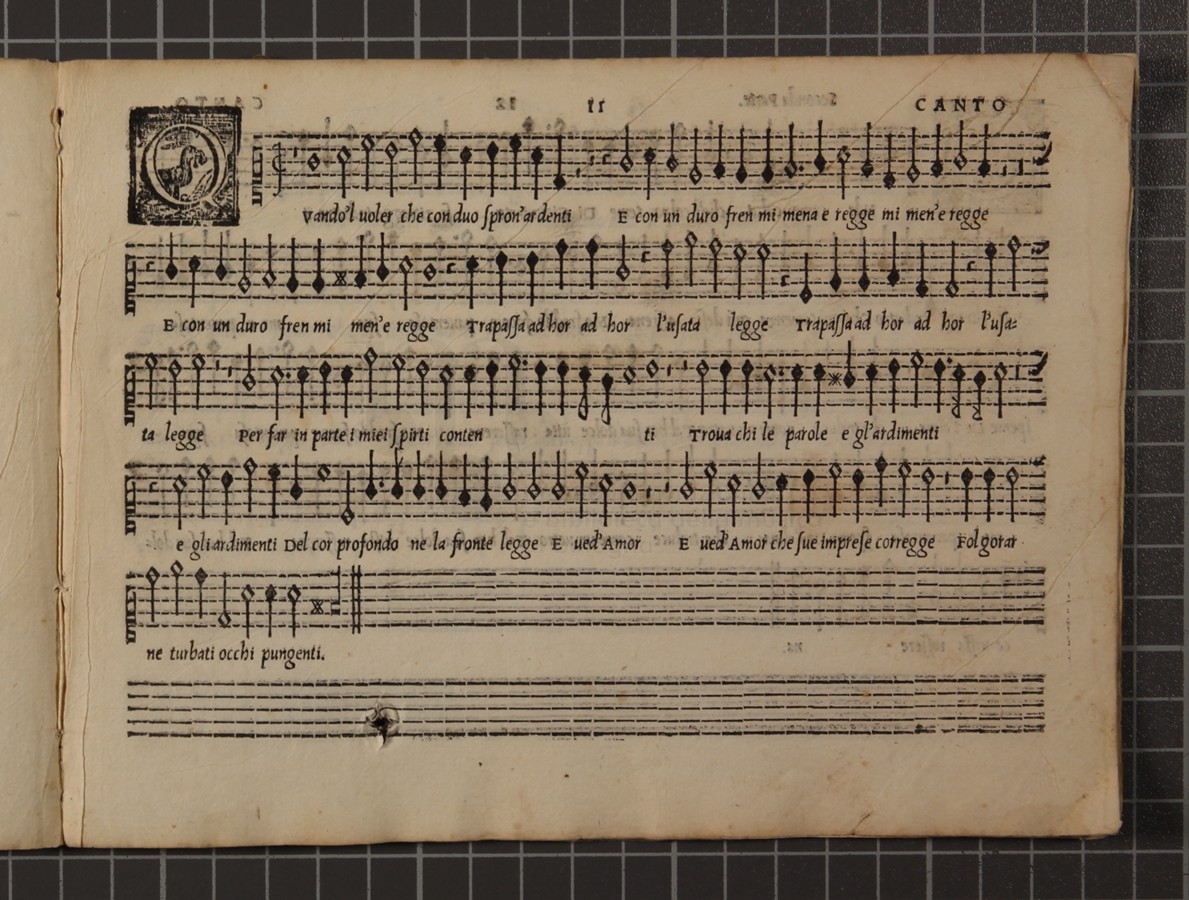 11 CANTO
Q
Vando'l uoler che con duo spron'ardenti E con un duro fren mi mena e regge mi men'e regge
E con un duro fren mi men'e regge Trapassa ad hor ad hor l'usata legge Trapassa ad hor ad hor l'usa=
ta legge Per far in parte i miei spirti conten ti Troua chi le parole e gl'ardimenti
e gli ardimenti Del cor profondo ne la fronte legge E ued'Amor E ued'Amor che sue imprese corregge Folgorar
ne turbati occhi pungenti.